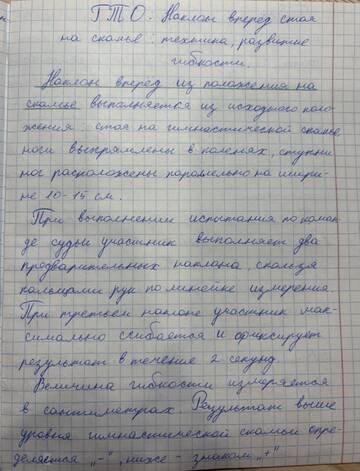 ГТО. Наклон вперед стоя
на скамье: техника, развитие
гибкости.
Наклон вперёд из положения на
скамье выполняется из исходного поло-
жения: стоя на гимнастической скамье,
ноги выпрямлены в коленях, ступни
ног расположены параллельно на шири-
не 10-15 см.
При выполнении испытания по коман-
де судьи участник выполняет два
предварительных наклона, скользя
пальцами рук по линейке измерения.
При третьем наклоне участник мак-
симально сгибается и фиксирует
результат в течение 2 секунд
Величина гибкости измеряется
в сантиметрах. Результат выше
уровня гимнастической скамьи опре-
деляется „-", ниже - знаком „+"